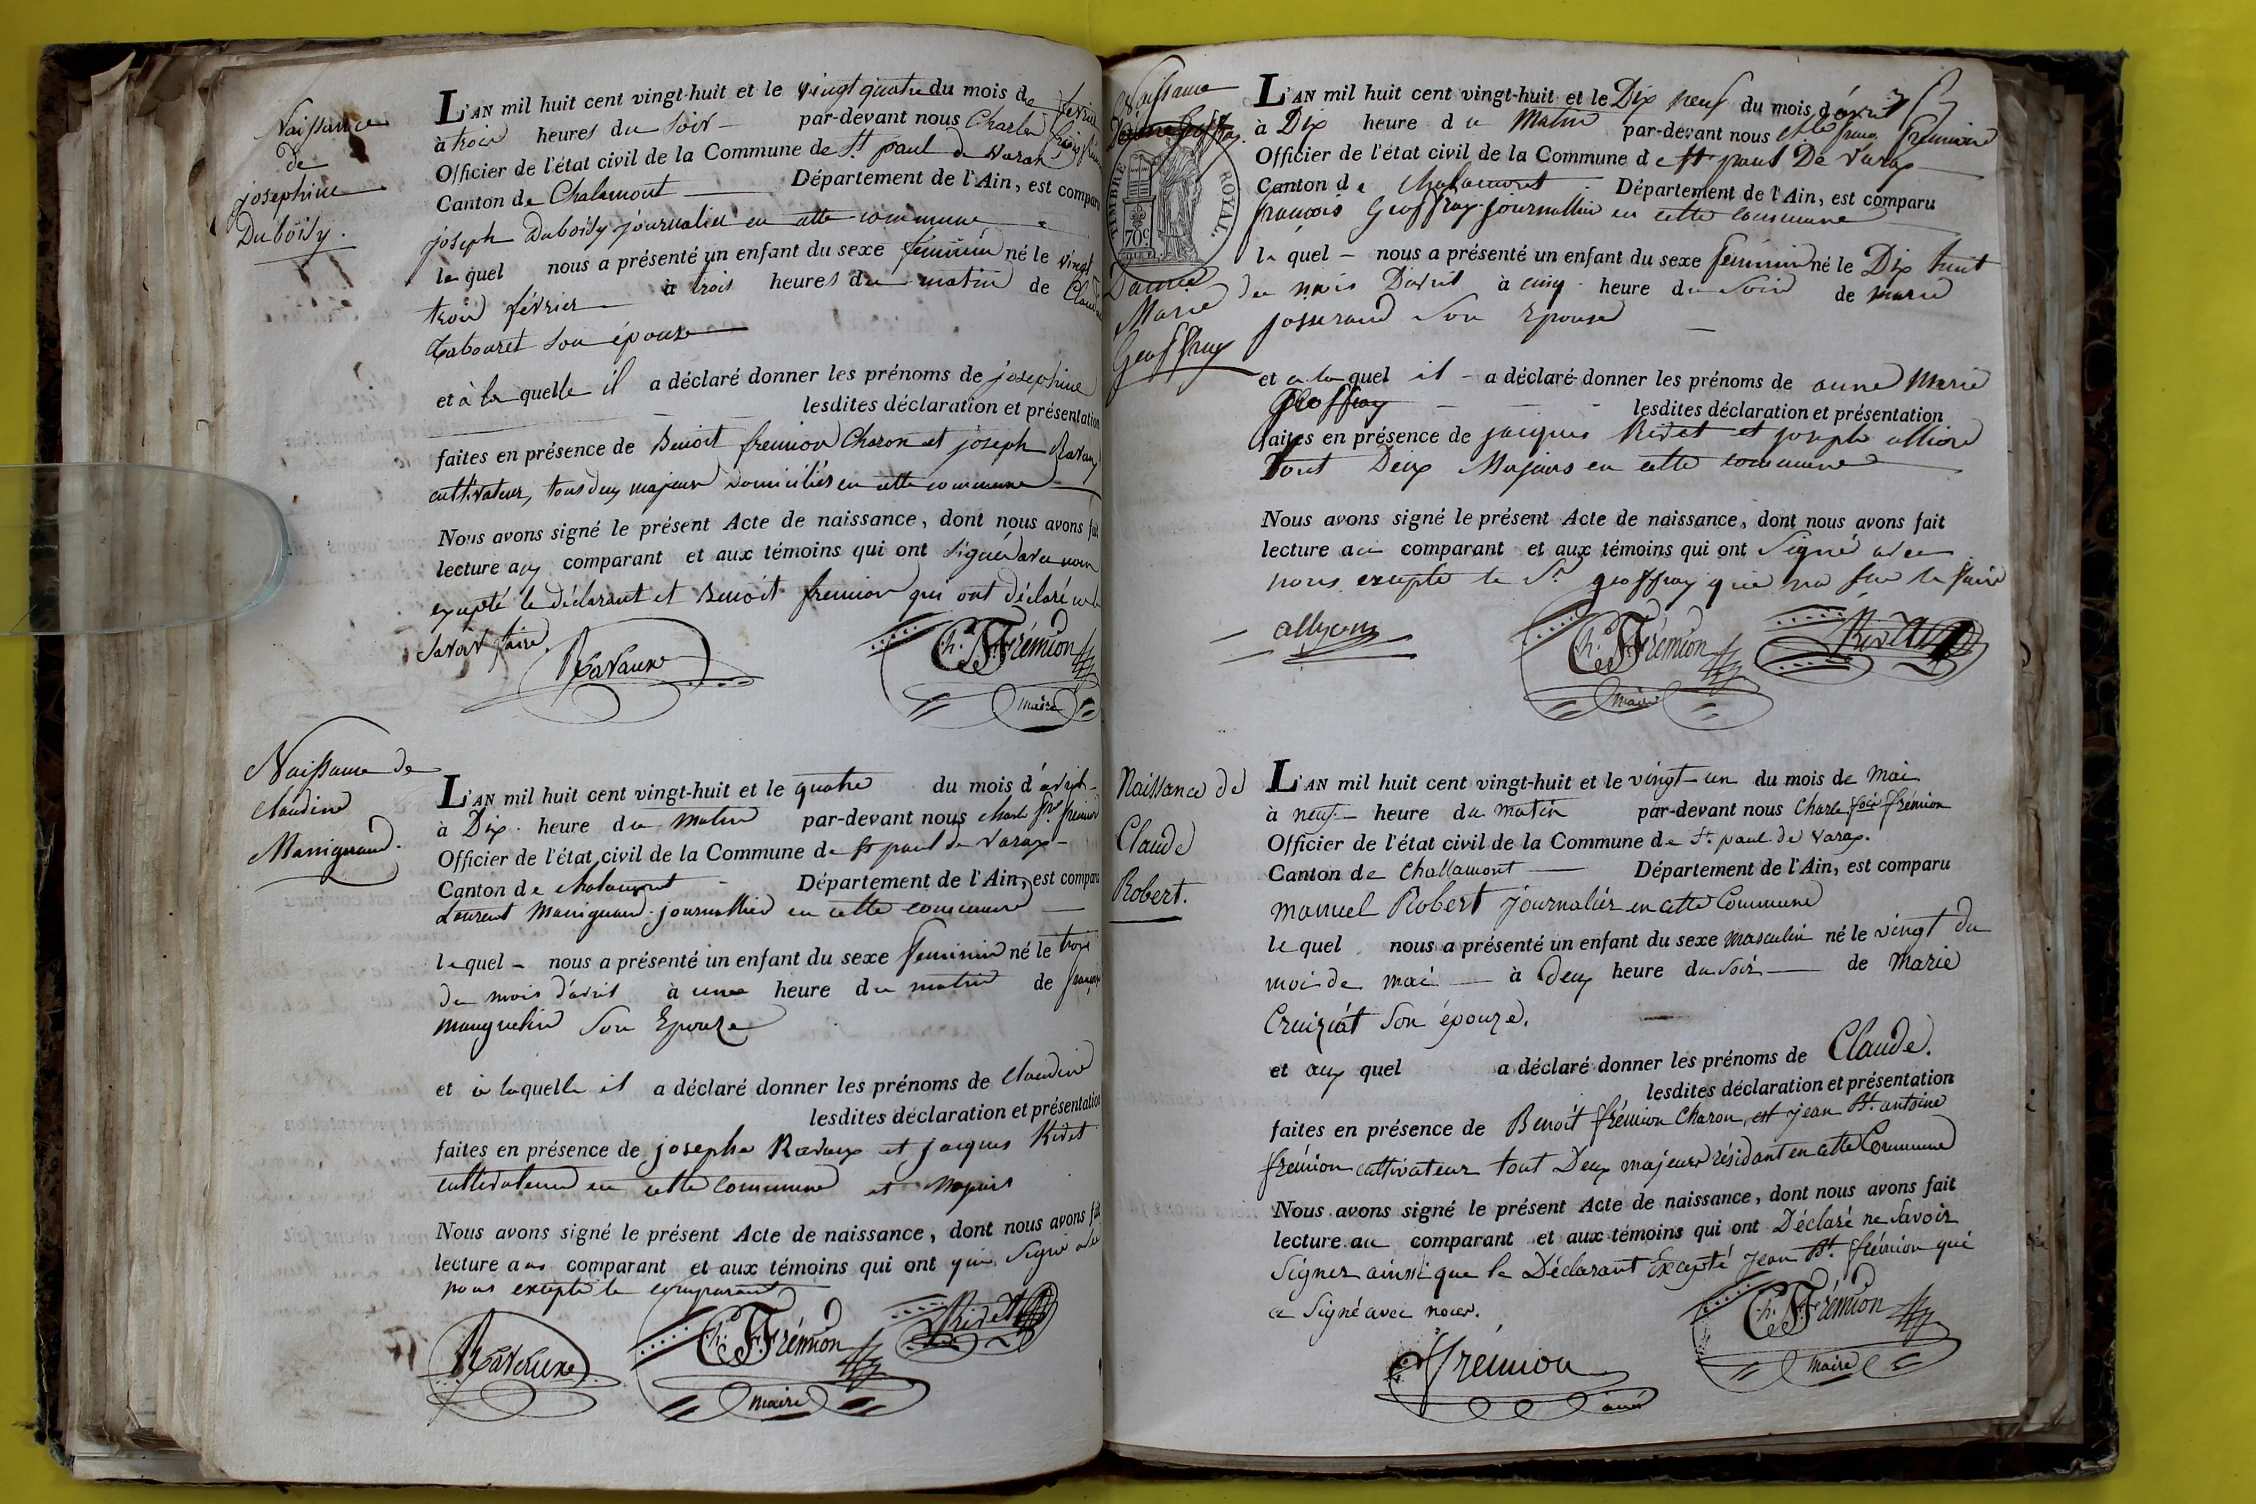 Naissance
de
josephine
Duboisy.
L'AN mil huit cent vingt-huit et le vingt quatre du mois de février
à trois heures du soir par-devant nous Charles
Officier de l'état civil de la Commune de St paul de Varax
Canton de Chalamont Département de l'Ain, est comparu
joseph Duboisy journalier en cette commune
lequel nous a présenté un enfant du sexe feminin né le vingt
trois février à trois heures du matin de Claudine
Tabouret son épouse
et à la quelle il a déclaré donner les prénoms de josephine
lesdites déclaration et présentation
faites en présence de Benoit fremion Charon et joseph Ravaux
cultivateur, tous deux majeurs domiciliés en cette commune
Nous avons signé le présent Acte de naissance, dont nous avons fait
lecture aux comparant et aux témoins qui ont signé avec nous
excepté le déclarant et Benoit fremion qui ont déclaré ne le
savoir faire.
Ravaux
Ch. F. Frémion
maire
Naissance de
claudine
Manigrand.
L'AN mil huit cent vingt-huit et le quatre du mois d'avril
à Dix heure du matin par-devant nous charle fois fremion
Officier de l'état civil de la Commune de St paul de Varax
Canton de chalamont Département de l'Ain, est comparu
Laurent Manigrand journallier en cette commune
lequel nous a présenté un enfant du sexe feminin né le trois
du mois d'avril à une heure du matin de
son Epouze
et à laquelle il a déclaré donner les prénoms de claudine
lesdites déclaration et présentation
faites en présence de josephe Ravaux et jacques Rivet
cultivateurs en cette commune et Majeurs
Nous avons signé le présent Acte de naissance, dont nous avons fait
lecture aux comparant et aux témoins qui ont signé avec
nous excepté le comparant
Ravaux
Ch. F. Frémion
maire
Rivet
Naissance
TIMBRE ROYAL.
70c
D'anne
Marie
Geoffray
L'AN mil huit cent vingt-huit et le Dix neuf du mois d'avril
à Dix heure du Matin par-devant nous fremion
Officier de l'état civil de la Commune de St paul De Varax
Canton de chalamont Département de l'Ain, est comparu
francois Geoffray journallier en cette commune
le quel nous a présenté un enfant du sexe feminin né le Dix huit
du mois Davril à cinq heure du Soir de marie
josserand Son Epouse
et a la quel il a déclaré donner les prénoms de anne Marie
Geoffray lesdites déclaration et présentation
faites en présence de jacques Rivet et joseph
tout Deux Majeurs en cette commune
Nous avons signé le présent Acte de naissance, dont nous avons fait
lecture au comparant et aux témoins qui ont Signé avec
nous excepte le Sr geoffray qui na sue le faire
Ch. F. Frémion
maire
Rivet
Naissance de
Claude
Robert.
L'AN mil huit cent vingt-huit et le vingt-un du mois de mai
à neuf heure du matin par-devant nous Charle fois frémion
Officier de l'état civil de la Commune de St paul de Varax.
Canton de Challamont Département de l'Ain, est comparu
manuel Robert journalier en cette Commune
le quel nous a présenté un enfant du sexe masculin né le vingt du
moi de mai à deux heure du soir de Marie
Cruizat son épouze.
et aux quel a déclaré donner les prénoms de Claude.
lesdites déclaration et présentation
faites en présence de Benoit frémion Charon, et jean Bt. antoine
frémion cultivateur tout Deux majeurs résidant en cette Commune
Nous avons signé le présent Acte de naissance, dont nous avons fait
lecture au comparant et aux témoins qui ont Déclaré ne savoir
Signer ainsi que le Déclarant Excepté jean Bt. frémion qui
a signé avec nous.
Ch. F. Frémion
maire
fremion